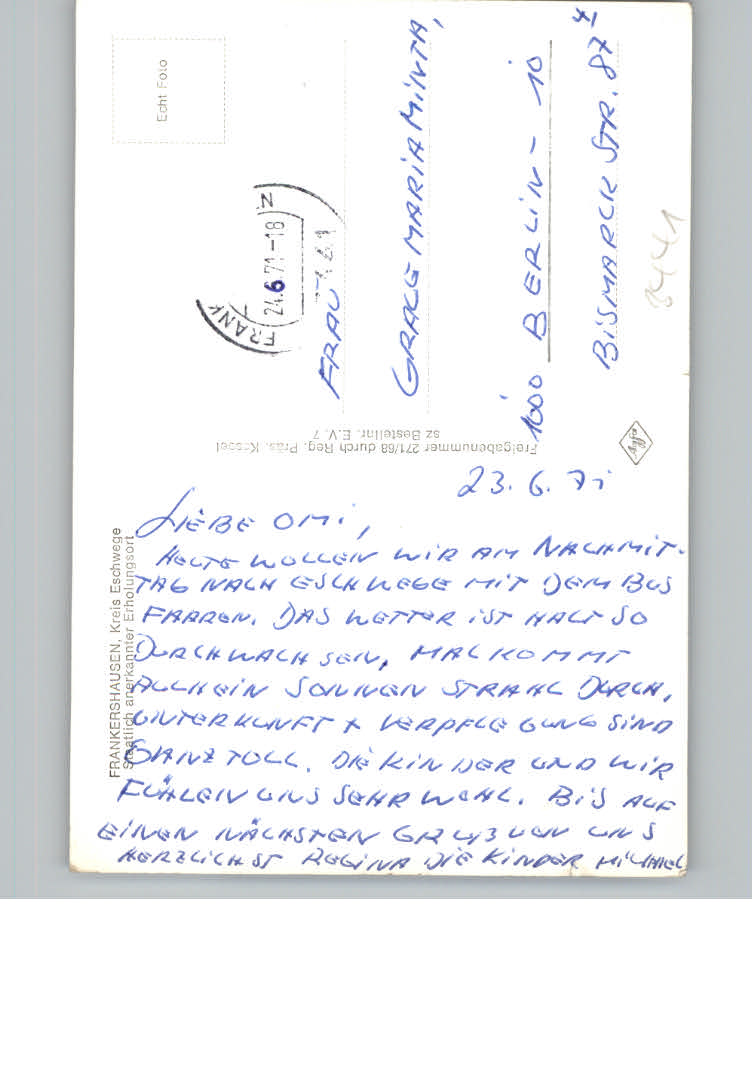 Echt Foto
FRANK
24.6.71-18
FRAU
GRACE MARIA MINTA,
1000 BERLIN - 10
BISMARCK STR. 87 I
8441
Freigabenummer 271/68 durch Reg. Präs. Kassel
sz Bestellnr. E.V. 7
Agfa
FRANKERSHAUSEN, Kreis Eschwege
Staatlich anerkannter Erholungsort
23. 6. 71
LIEBE OMI,
HEUTE WOLLEN WIR AM NACHMIT-
TAG NACH ESCHWEGE MIT DEM BUS
FAHREN. DAS WETTER IST HALT SO
DURCHWACHSEN, MAL KOMMT
AUCH EIN SONNEN STRAHL DURCH,
UNTERKUNFT + VERPFLEGUNG SIND
GANZ TOLL. DIE KINDER UND WIR
FÜHLEN UNS SEHR WOHL. BIS AUF
EINEN NÄCHSTEN GRUß VON UNS
HERZLICHST REGINA DIE KINDER MICHAEL